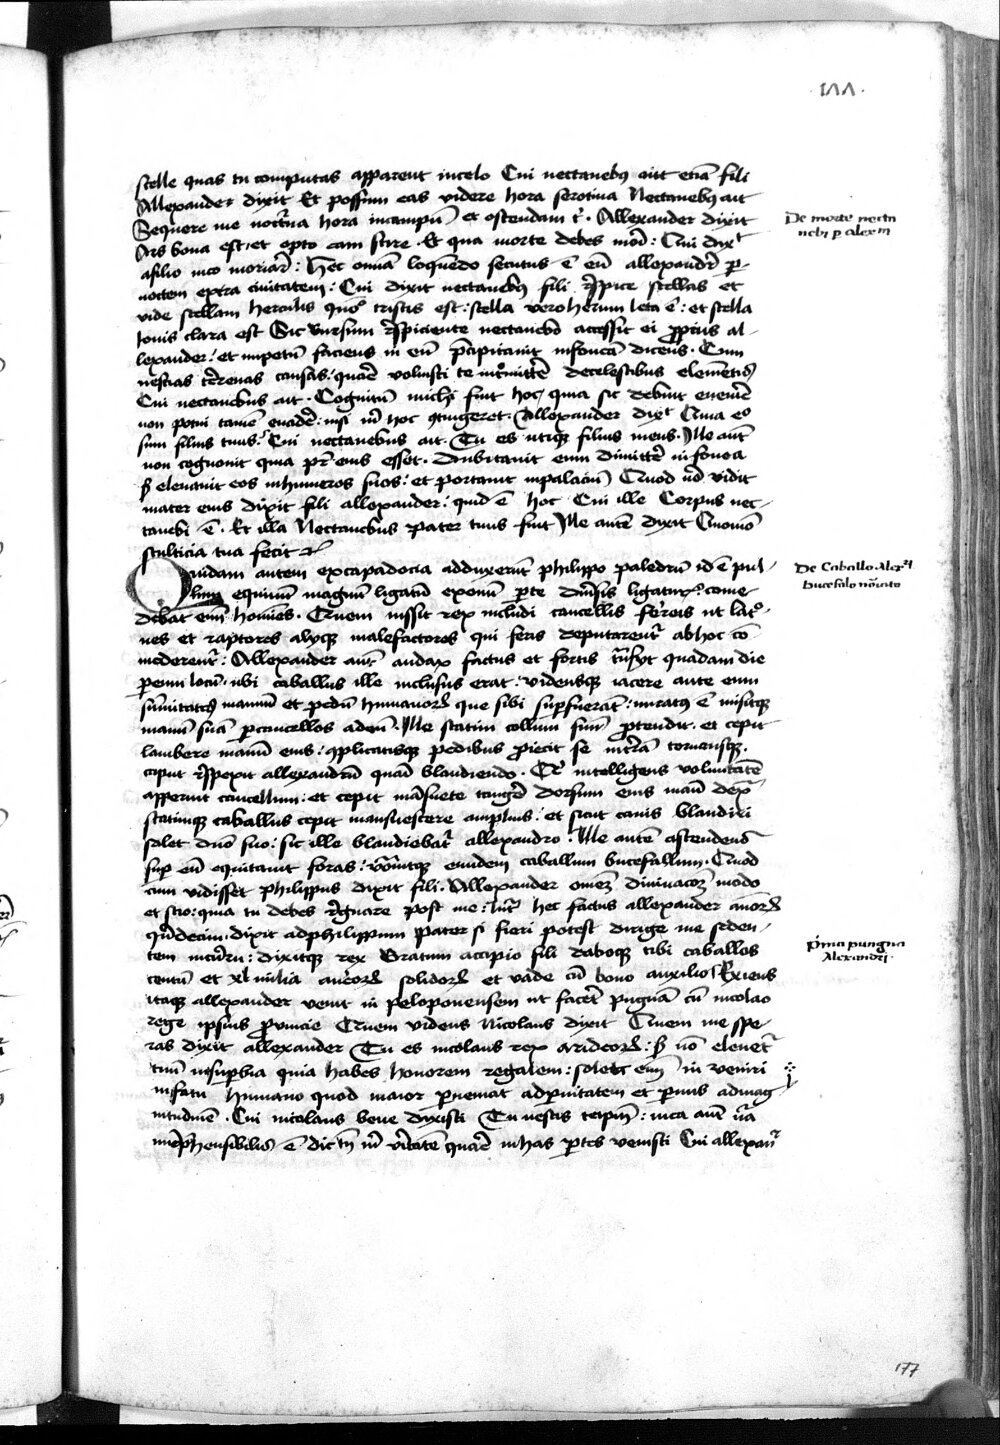 177.
stelle quas tu computas apparent incelo Cui nectanebus ait etiā fili
Allexander dixit Et possum eas videre hora serotina Nectanebus ait
Sequere me noctina hora incampū et ostendam t. Allexander dixit
Ars bona est, et opto eam scire. Et qua morte debes mori: Cui dixt
afilio meo moriar: Hec omnia loquendo secutus ē eū allexander p
noctem extra ciuitatem: Cui dixit nectanebus fili respice stellas et
vide stellam herculis quō tristis est: stella vero herium leta ē: et stella
Iouis clara est Sic sursum respiciente nectanebo accessit ei propius al-
lexander: et impetū faciens in eū precipitauit infoueā dicens. Cum
nescias terrenas causas: quare voluisti te intmitte decelestibus elementis
Cui nectanebus ait. Cognitum michi fuit hoc, quia sic debuit euenire
non potui tamē euade: nisi m hoc contingeret. Allexander dixt Quia ego
sum filius tuus: Cui nectanebus ait. Tu es utiqz filius meus. Ille aut
non cognouit quia pr eius esset. Dubitauit eum dimitte infouea
s eleuauit eos inhumeros suos: et portauit inpalaciū Quod ud vidit
mater eius dixit fili allexander: quid ē hoc Cui ille Corpus nec-
tanebi ē. Et illa Nectanebus pater tuus fuit Ille autē dixit Quomō
stulticia tua fecit
Quidam autem excapadocia adduxerunt philippo paledrū id ē pul-
lum equinum magnum ligatū exomi pte diuersis ligaturis: come
debat enī homines. Quem iussit rex includi cancellis ferreis ut latro-
nes et raptores alyqz malefactores qui feris deputarent abhoc cō
mederent: Allexander aut audax factus et fortis transyt quadam die
penni locū. ubi caballus ille inclusus erat: vidensqz iacere ante eum
sumitates manuum et pedū humanorum que sibi supfuerāt: miratus ē misitqz
manū suā pcancellos adeū. Ille statim collum suū ptendit. et cepit
lambere manū eius: cplicatisqz pedibus piecit se interrā tornansqz
caput respexit allexandrū quasi blandiendo. Et intelligens voluntatē
apperuit cancellum: et cepit māsuete tangē dorsum eius manu dextra
statimqz caballus cepit mansuescere amplius: et sicut canis blandiri
solet dno suo: sic ille blandiebatur allexandro. Ille autē ascendens
sup eū equitauit foras: eundem caballum bucefallum. Quod
cum vidisset philippus dixit fili. Allexander omēs diuinacoēs modo
et scio: quia tu debes regnare post me: Int hec factus allexander annorum
quidecim. dixit adphilippum Pater si fieri potest dirige me seden-
tem incurru: dixitqz rex Gratum accipio fili daboqz tibi caballos
centū et xl milia aureorum solidorum et vade cū bono auxilio Exiens
itaqz allexander venit in peloponensem ut facet pugnā cū nicolao
rege ipsius prouincie Quem videns Nicolaus dixit Quem me spe-
ras dixit allexander Tu es nicolaus rex arideorum: s nō eleuet
tuū insupbia quia habes honorem regalem: solet enī in veniri
infatu humano quod maior pueniat adpruitatem et pruus admag
nitudinē. Cui nicolaus bene dixisti Tu nescis teipm: mea aut uita
inrephensibilis ē dic tn m veritatē quare inhas ptes venisti Cui allexan
De morte necta
nebi p alexm
De Caballo Alexri
bucefalo noīato
Prima pungna
Alexandri.
177